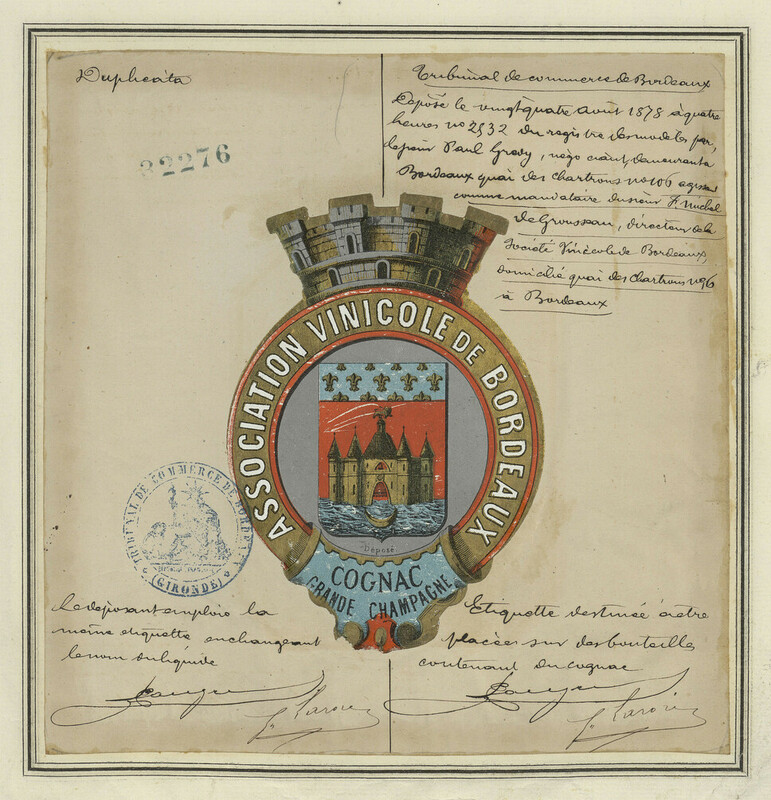 Duplicata
32276
Tribunal de commerce de Bordeaux
Déposé le vingtquatre août 1878 à quatre
heures no 2532 du registre des modeles par,
le sieur Paul Gredy, négociant, demeurant à
Bordeaux quai des Chartrons no 106 agissant
comme mandataire du sieur
de Grousseau, directeur de la
Société Vinicole de Bordeaux,
domicilié quai des Chartrons no 96
à Bordeaux
ASSOCIATION VINICOLE DE BORDEAUX
Déposé
COGNAC
GRANDE CHAMPAGNE
TRIBUNAL DE COMMERCE DE BORDEAUX
(GIRONDE)
le deposant emploie la
même etiquette en changeant
le nom du liquide
Etiquette destinée a etre
placées sur des bouteilles
contenant du cognac